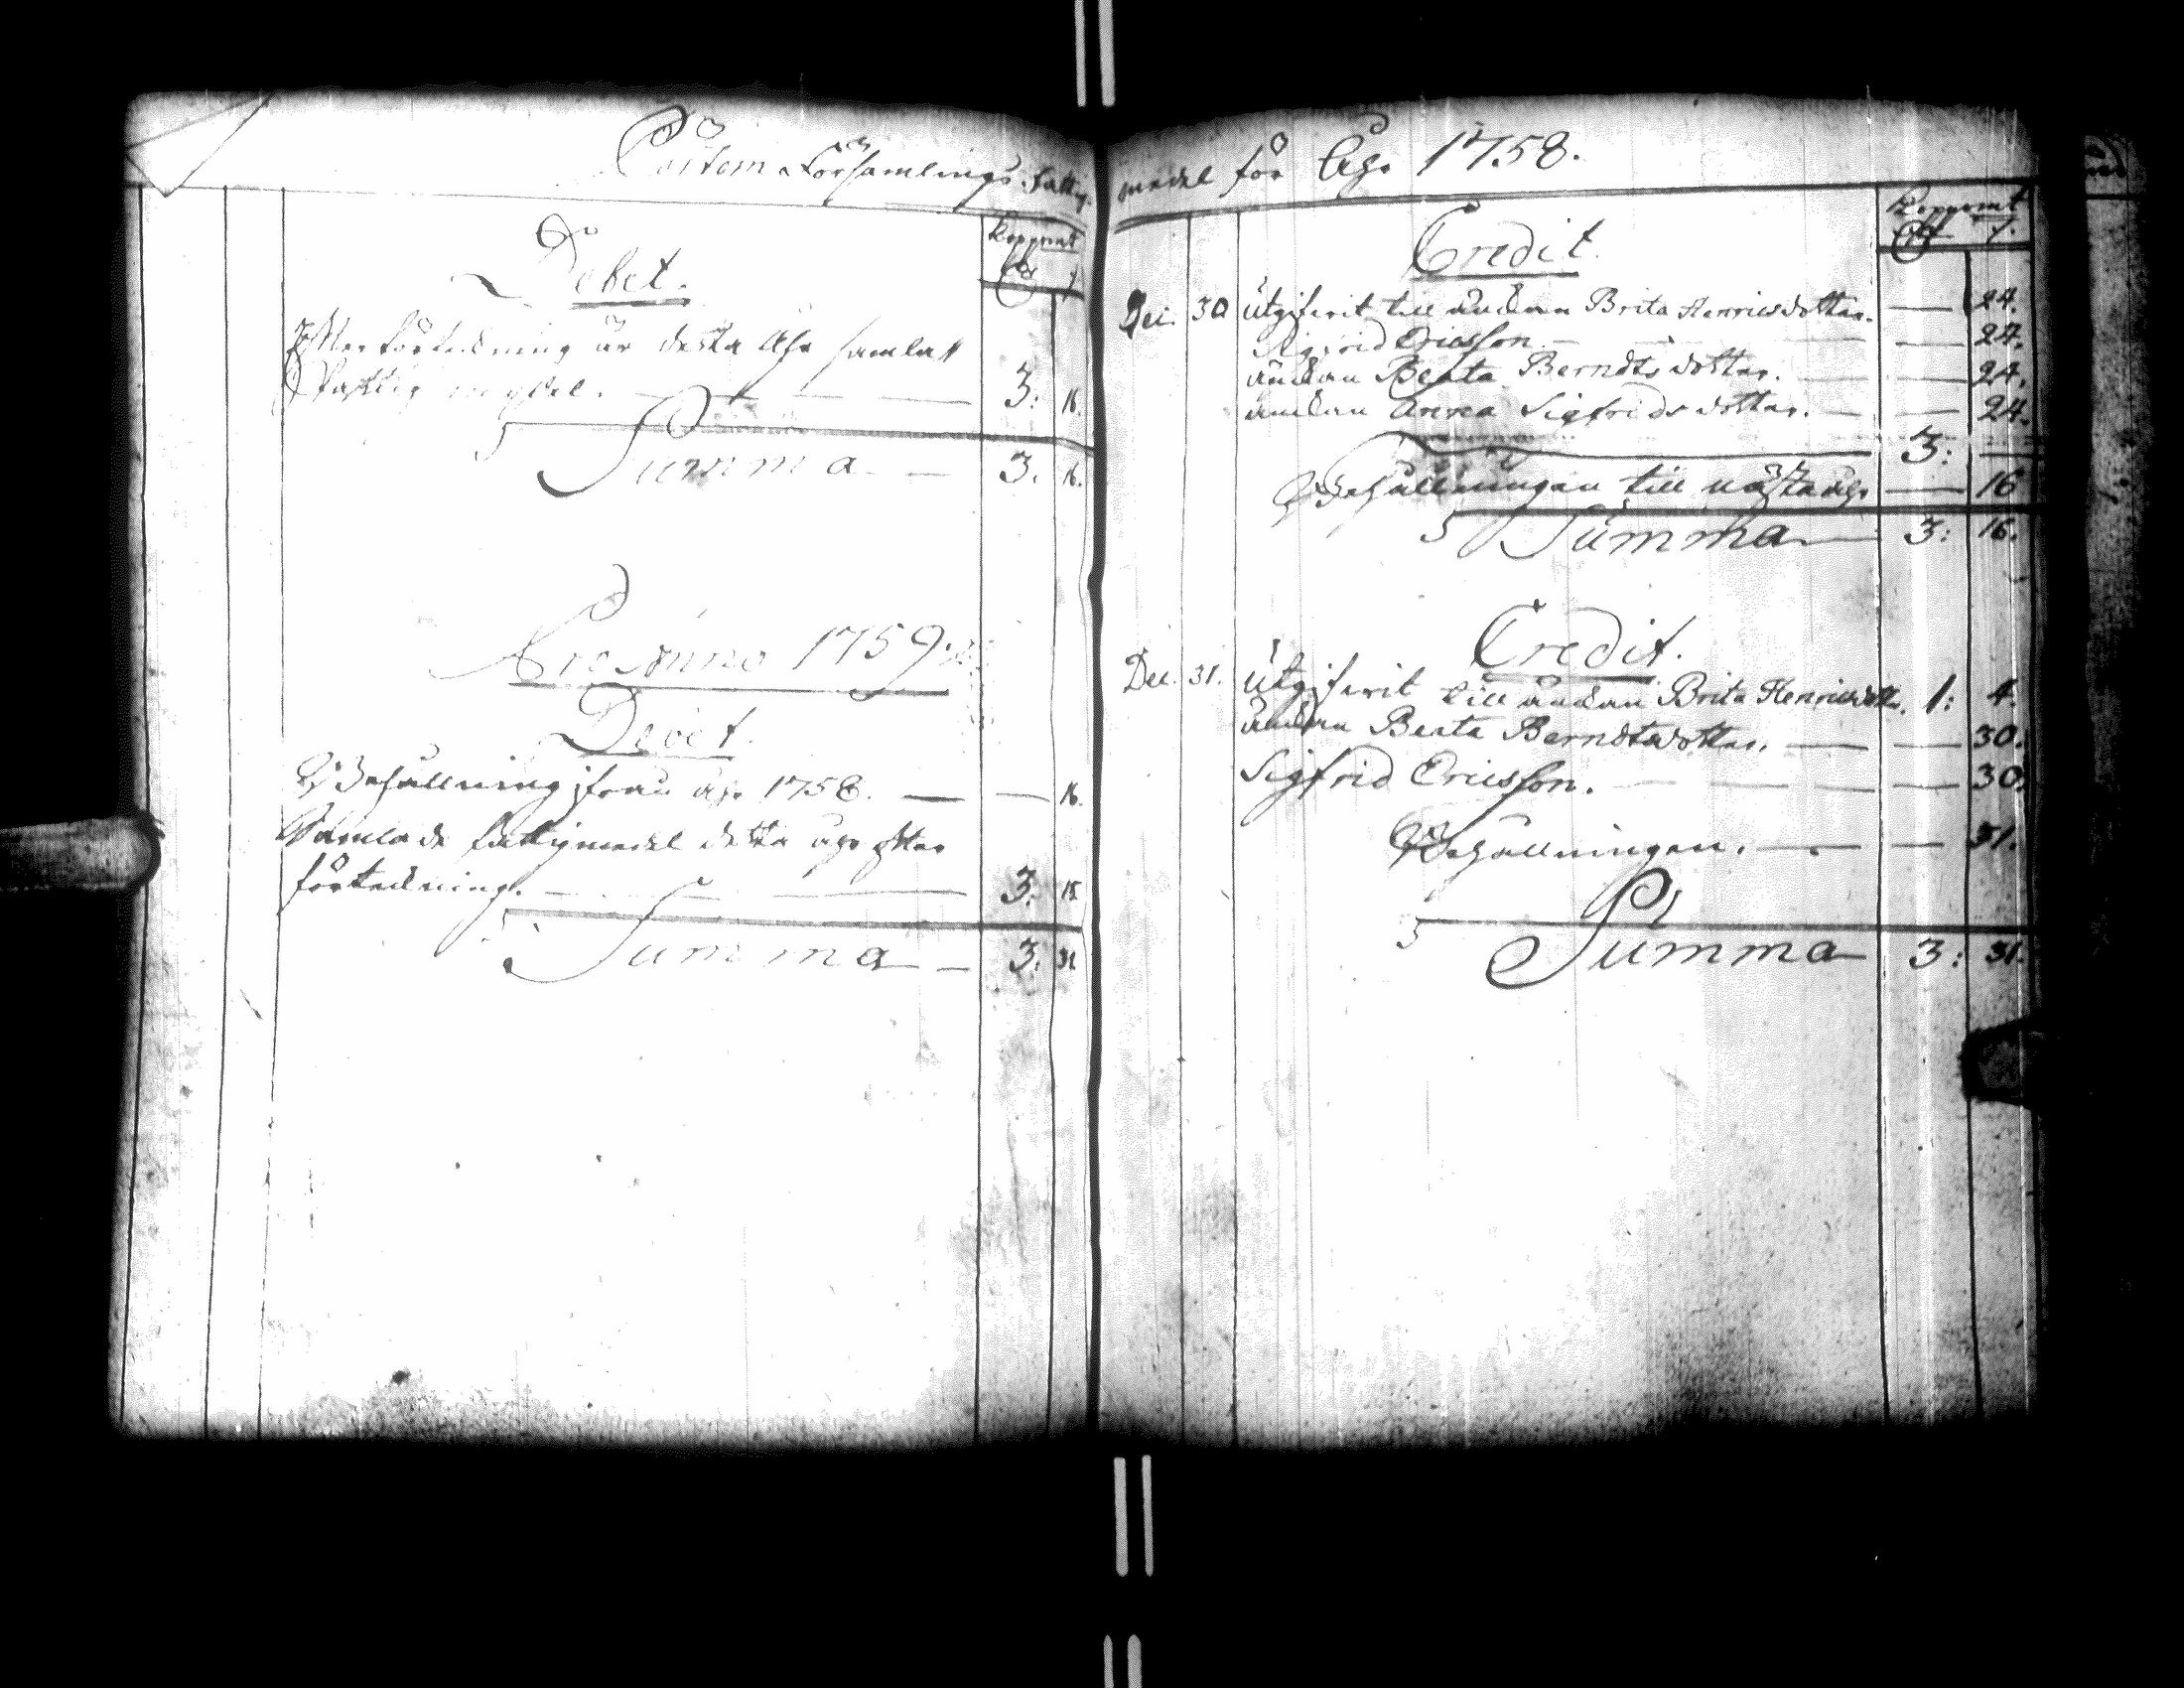 Församlings fattig
Debet.
Kopp.mt
Efter förteckning är detta åhr samlat
fattig medel. 3: 16.
Summa 3. 16.
Pro Anno 1759.
Debet.
Behållning från åhr 1758. 16.
Samlade fattigmedel detta åhr efter
förteckning. 3. 15
Summa 3. 31
medel för Åhr 1758.
Credit. Kopp.mt
Dec. 30 Utgifvit till änkan Brita Henricsdotter. 24.
Sigfrid Ericsson 24.
änkan Beata Berndtsdotter. 24.
änkan Anna Sigfridsdotter. 24.
3:
Behållningen till nästa åhr 16
Summa 3: 16.
Credit.
Dec. 31. Utgifvit till änkan Brita Henricsdotter. 1: 4.
änkan Beata Berndtsdotter. 30.
Sigfrid Ericsson. 30.
Behållningen. 31.
Summa 3: 31.